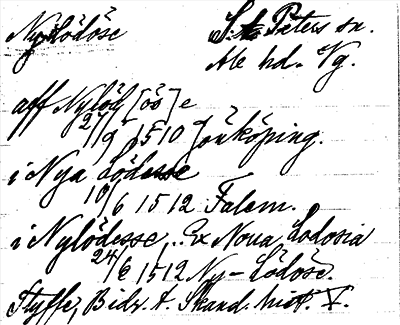 Nylödöse S:t Peters sn.
Ale hd. Vg.
aff Nylöd[öö]e
27/9 1510 Jönköping.
i Nya Lödesse
10/6 1512 Falem.
i Nylödesse, Ex Noua Lodosia
24/6 1512 Ny-Lödöse.
Styffe, Bidr. t. Skand. hist. V.